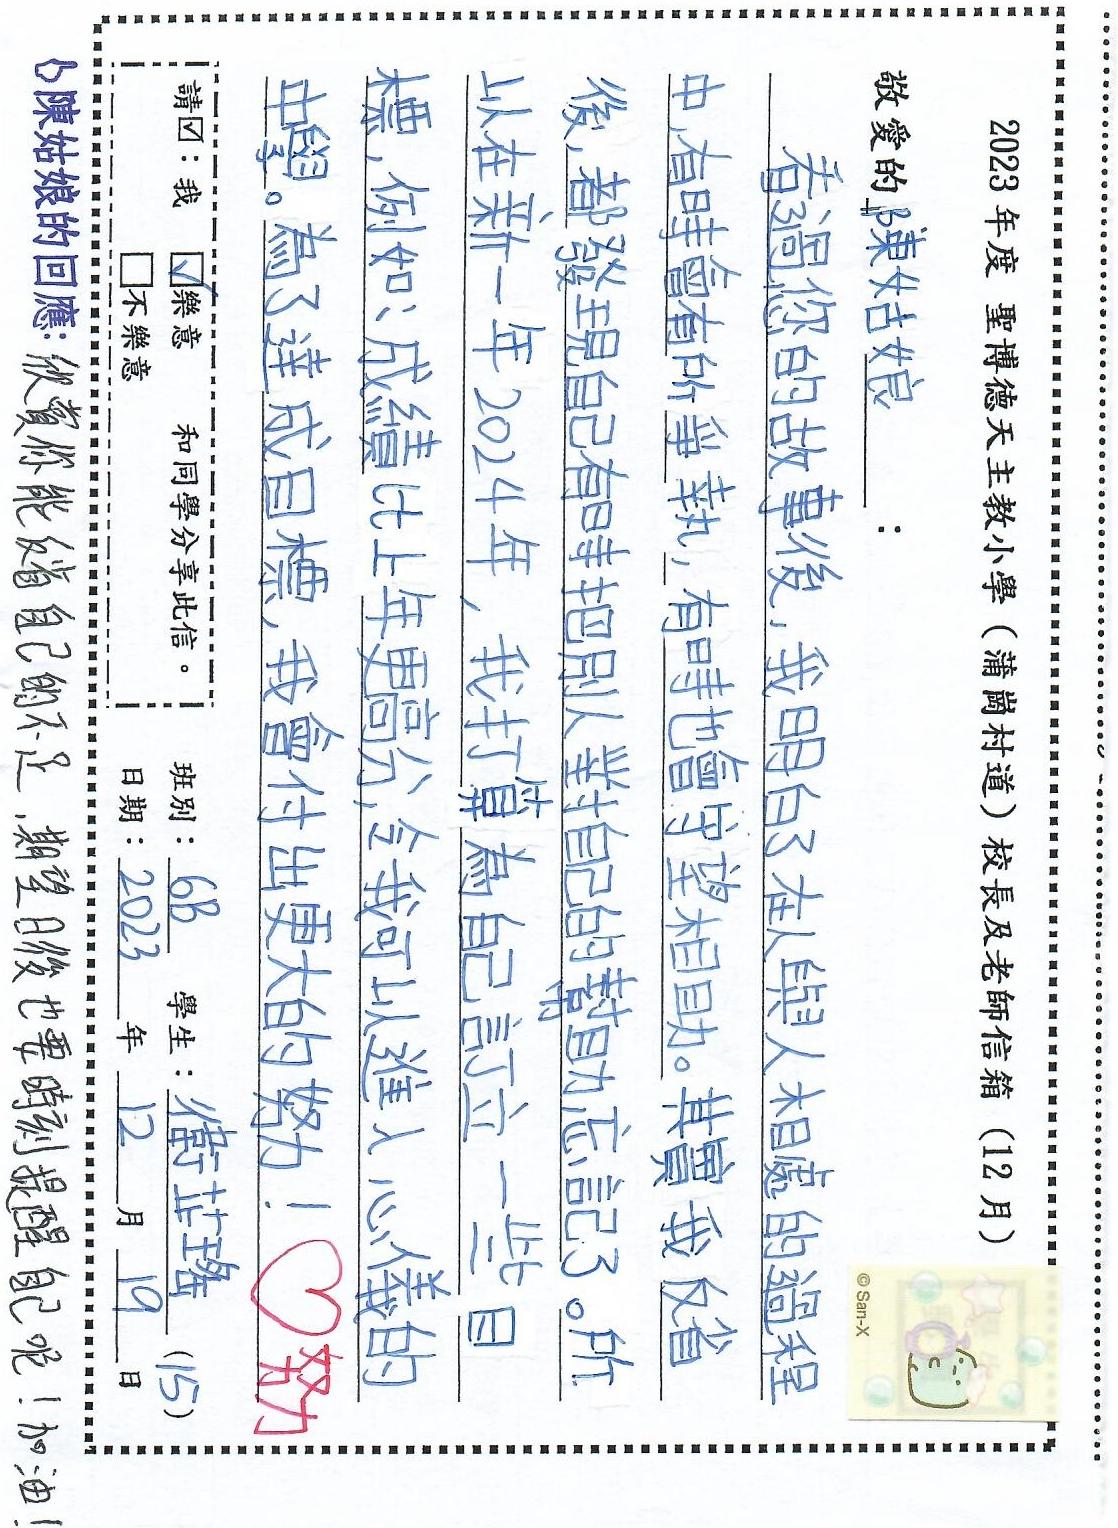 2023 年度 聖博德天主教小學（蒲崗村道）校長及老師信箱（12 月）
© San-X
敬愛的陳姑娘：
看過你的故事後，我明白了在人與人相處的過程
中，有時會有所爭執，有時也會守望相助。其實我反省
後，都發現自己有時把別人對自己的幫助忘記了。所
以在新一年2024年，我打算為自己訂立一些目
標，例如：成績比上年更高分，令我可以進入心儀的
中學。為了達成目標，我會付出更大的努力！
努力
請☑：我 ☑樂意 和同學分享此信。
□不樂意
班別：6B 學生：衞芷瑤 (15)
日期：2023 年 12 月 19 日
陳姑娘的回應：欣賞你能反省自己的不足，期望日後也要時刻提醒自己呢！加油！